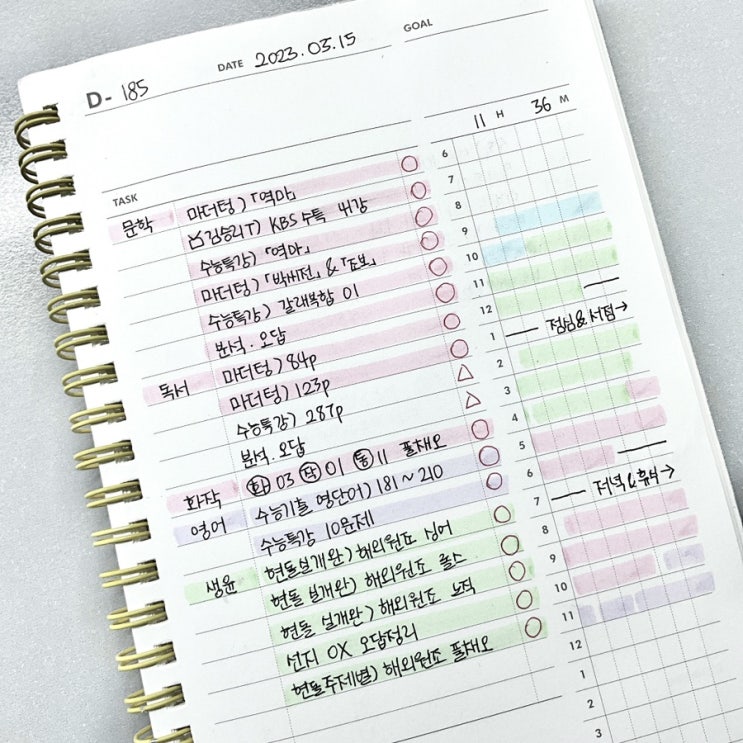 D- 185
DATE 2023.03.15
GOAL
11 H 36 M
TASK
문학 마더텅) 「역마」
김승리T) KBS 수특 4강
수능특강) 「역마」
마더텅) 「박씨전」 & 「포보」
수능특강) 갈래복합 01
분석. 오답
독서 마더텅) 84p
마더텅) 123p
수능특강) 287p
분석. 오답
화작 화 03 작 01 통 11 풀채오
영어 수능기출 영단어) 181~210
수능특강 10문제
생윤 현돌 실개완) 해외원조 싱어
현돌 실개완) 해외원조 롤스
현돌 실개완) 해외원조 노직
선지 OX 오답정리
현돌주제별) 해외원조 풀채오
6
7
8
9
10
11
12
1 점심&서점→
2
3
4
5
6
7 저녁&휴식→
8
9
10
11
12
1
2
3